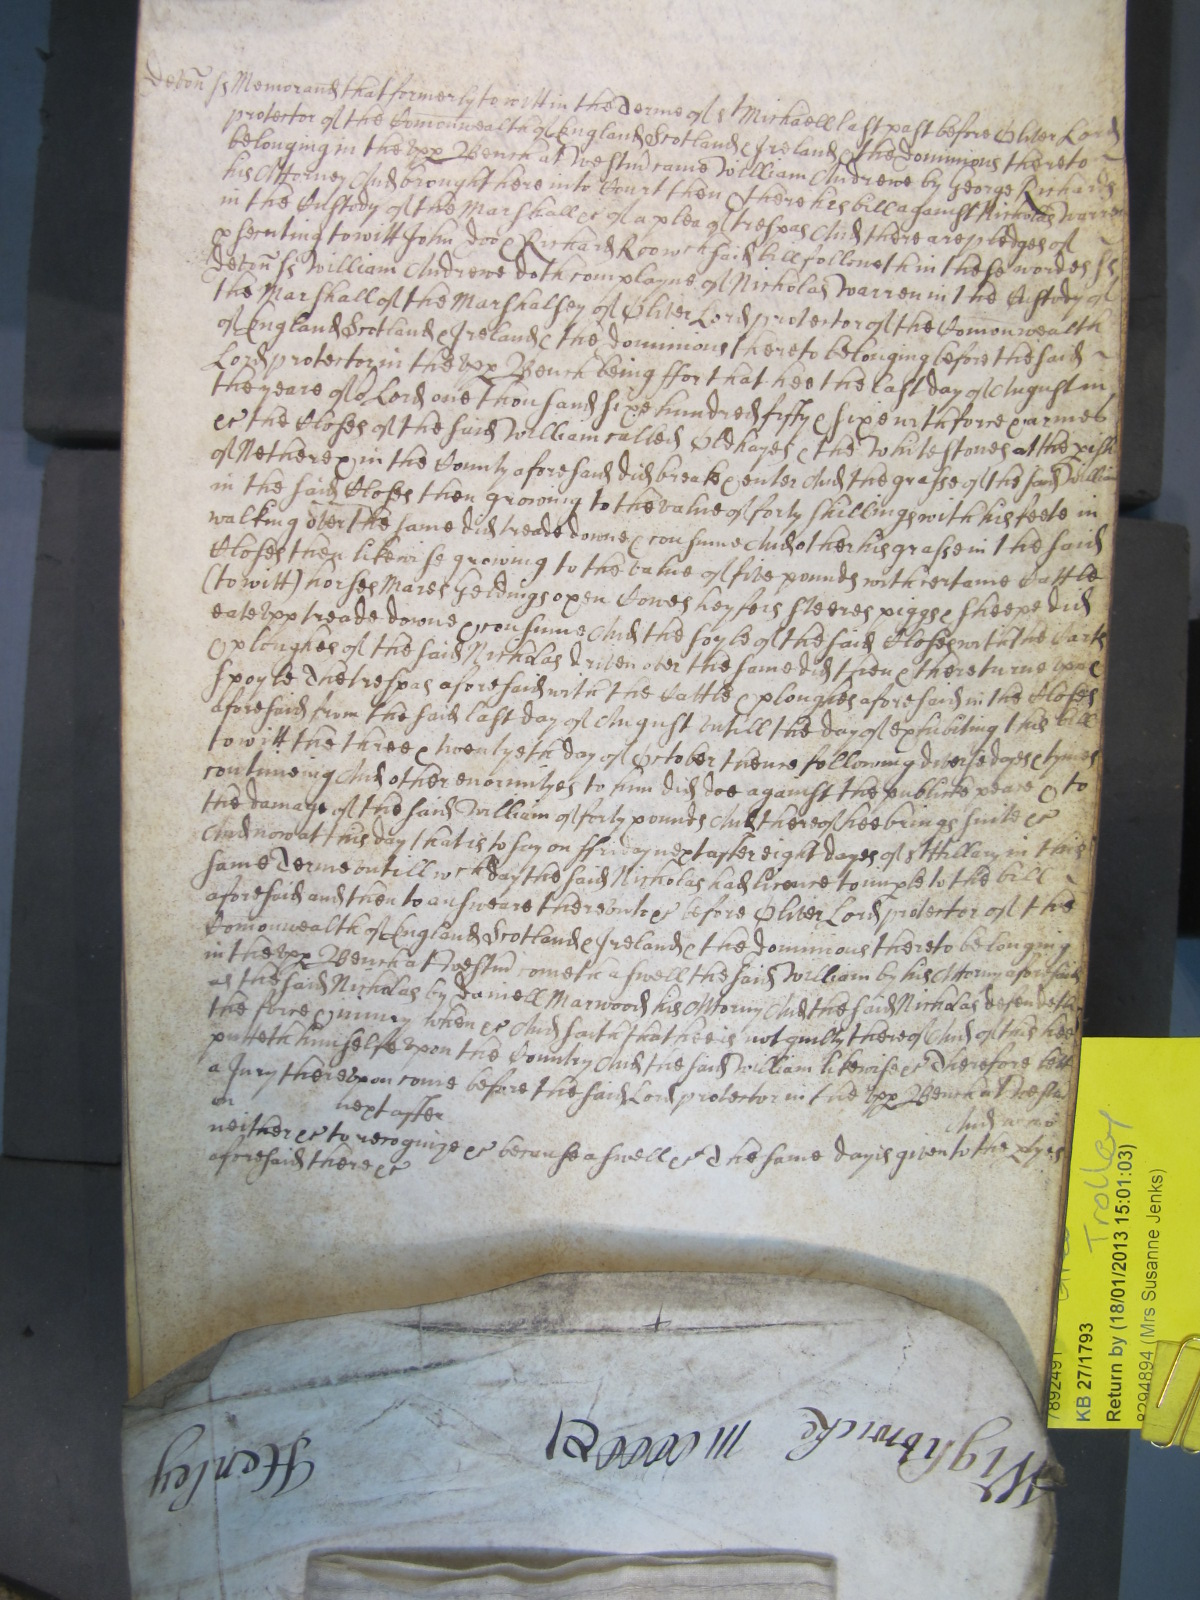 Devoñ ss Memorand that formerly to witt in the Terme of st Michaell last past before Oliver Lord
protector of the Comonwealth of England Scotland & Ireland & the dominions thereto
belonging in the upp Bench at Westmr came William Andrewe by George Richards
his Attorney And brought here into Court then & there his bill against Nicholas Warren
in the Custody of the Marshall &c of a plea of trespas And there are pledges of
psecuting to witt John Doo & Richard Roo wch said bill followeth in these wordes ss
Devoñ ss William Andrewe doth complayne of Nicholas Warren in the Custody of
the Marshall of the Marshalsey of Oliver Lord protector of the Comonwealth
of England Scotland & Ireland & the dominions thereto belonging before the said
Lord protector in the upp Bench being ffor that hee the last day of August in
the yeare of or Lord one thousand sixe hundred fifty & sixe with force & armes
&c the Closes of the said William called Oldhayes & the Whitestones at the pish
of Netherex in the County aforesaid did breake & enter And the grasse of the said William
in the said Closes then growing to the value of forty shillings with his feete in
walking over the same did treade downe & consume And other his grasse in the said
Closes then likewise growing to the value of five pounds with certaine Cattle
(to witt) horses Mares Geldings oxen Cowes heyfers steeres piggs & sheepe did
eate upp treade downe & consume And the soyle of the said Closes with the Carts
& ploughes of the said Nicholas driven over the same did then & there turne upp &
spoyle The trespas aforesaid with the Cattle & ploughes aforesaid in the Closes
aforesaid from the said last day of August untill the day of exhibiting this bill
to witt the three & twentyeth day of October thence following diverse dayes & tymes
continueing And other enormityes to him did doe against the publicke peace & to
the damage of the said William of forty pounds And thereof hee brings suite &c
And now at this day that is to say on ffriday next after eight dayes of st Hillary in this
same Terme untill wch day the said Nicholas had licence to imple to the bill
aforesaid and then to answeare thereunto &c before Oliver Lord protector of the
Comonwealth of England Scotland & Ireland & the dominions thereto belonging
in the upp Bench at Westmr cometh aswell the said William by his Attorny aforesaid
as the said Nicholas by Daniell Marwood his Attorny And the said Nicholas defendeth
the force & iniury when &c And saith that hee is not guilty thereof And of this hee
putteth himselfe upon the Country And the said William likewise &c Therefore lett
a Jury thereupon come before the said Lord protector in the upp Bench at Westmr
on next after And who
neither &c to recognize &c because aswell &c The same day is given to the ptyes
aforesaid there &c
Wightwicke
Henley
KB 27/1793
Trolley
Return by (18/01/2013 15:01:03)
8294894 (Mrs Susanne Jenks)